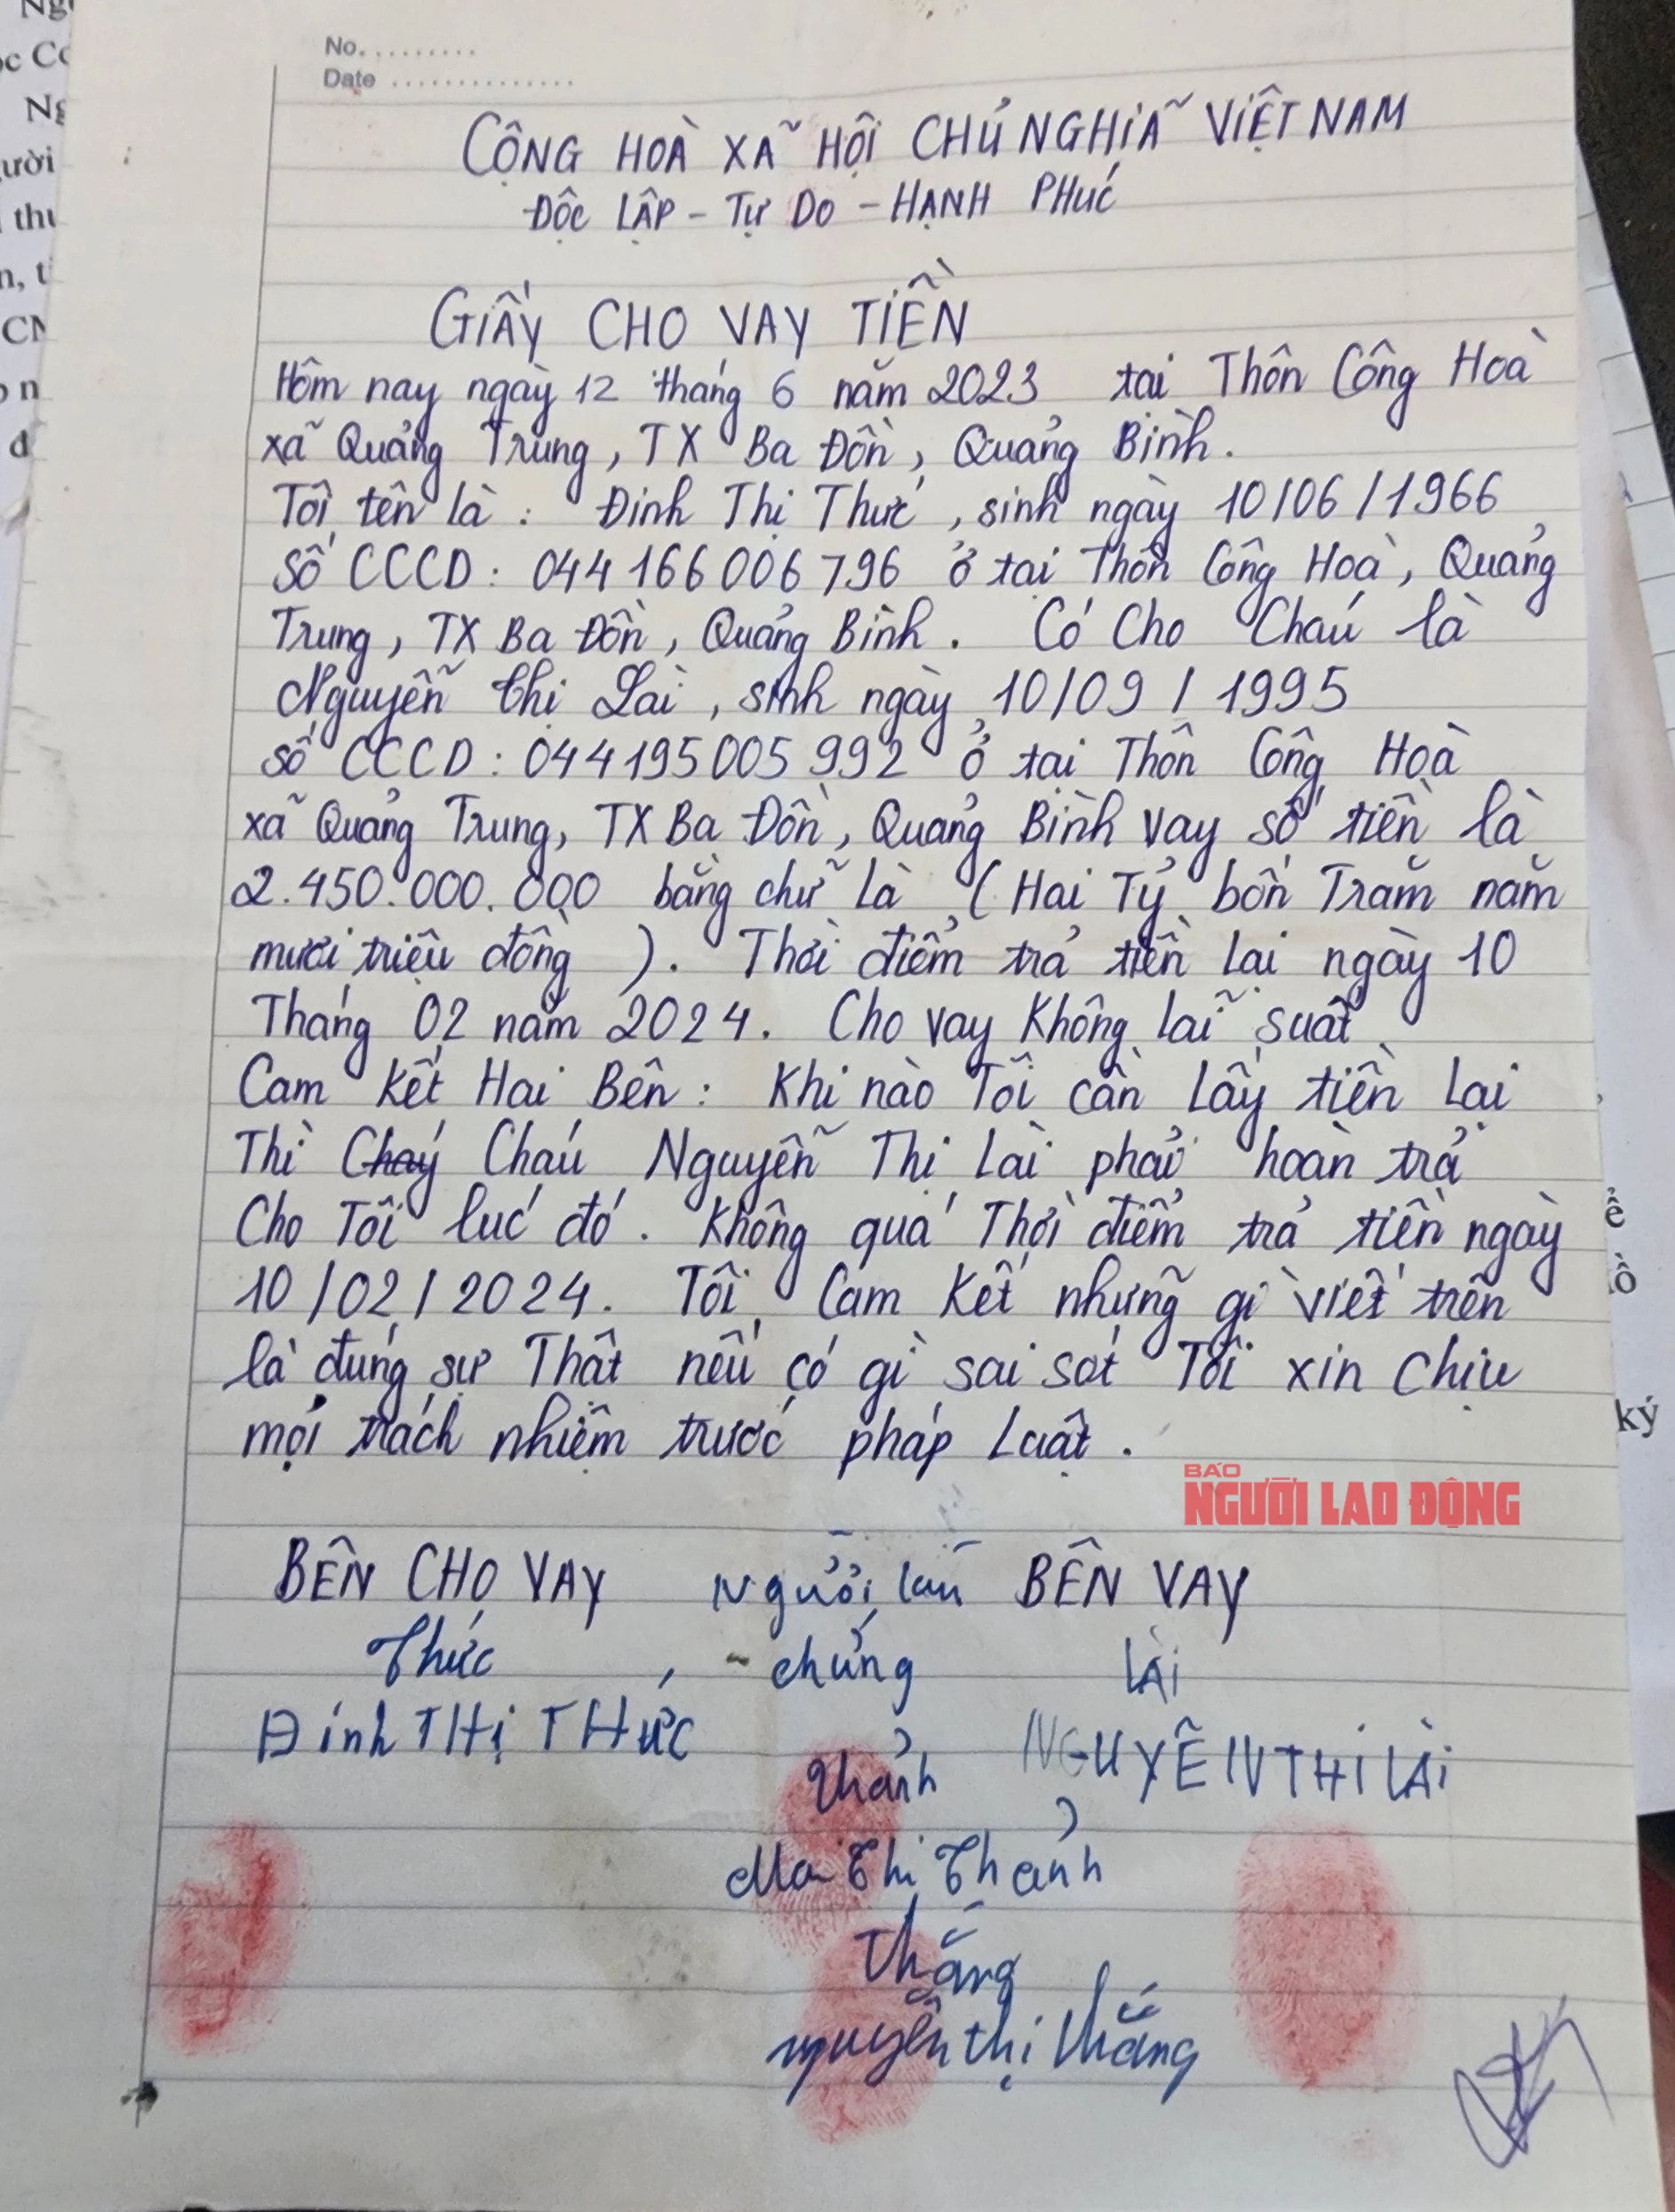 No. .........
Date ...............
CỘNG HOÀ XÃ HỘI CHỦ NGHĨA VIỆT NAM
ĐỘC LẬP - TỰ DO - HẠNH PHÚC
GIẤY CHO VAY TIỀN
Hôm nay ngày 12 tháng 6 năm 2023 tại Thôn Công Hoà
xã Quảng Trung, TX Ba Đồn, Quảng Bình.
Tôi tên là : Đinh Thị Thức, sinh ngày 10/06/1966
Số CCCD: 044166006796 ở tại Thôn Công Hoà, Quảng
Trung, TX Ba Đồn, Quảng Bình. Có Cho Cháu là
Nguyễn Thị Lài, sinh ngày 10/09/1995
số CCCD: 044195005992 ở tại Thôn Công Hoà
xã Quảng Trung, TX Ba Đồn, Quảng Bình vay số tiền là
2.450.000.000 bằng chữ là (Hai Tỷ bốn Trăm năm
mươi triệu đồng ). Thời điểm trả tiền lại ngày 10
Tháng 02 năm 2024. Cho vay Không lãi suất
Cam Kết Hai Bên: Khi nào Tôi cần lấy tiền lại
Thì Cháy Cháu Nguyễn Thị Lài phải hoàn trả
Cho Tôi lúc đó. Không quá Thời điểm trả tiền ngày
10/02/2024. Tôi Cam Kết những gì viết trên
là đúng sự Thật nếu có gì sai sót Tôi xin Chịu
mọi trách nhiệm trước pháp Luật.
BÁO
NGƯỜI LAO ĐỘNG
BÊN CHO VAY Người làm BÊN VAY
Thức chứng LÀI
Đinh THỊ THỨC NGUYỄN THỊ LÀI
Thảnh
Mai Thị Thảnh
Thắng
nguyễn thị thắng